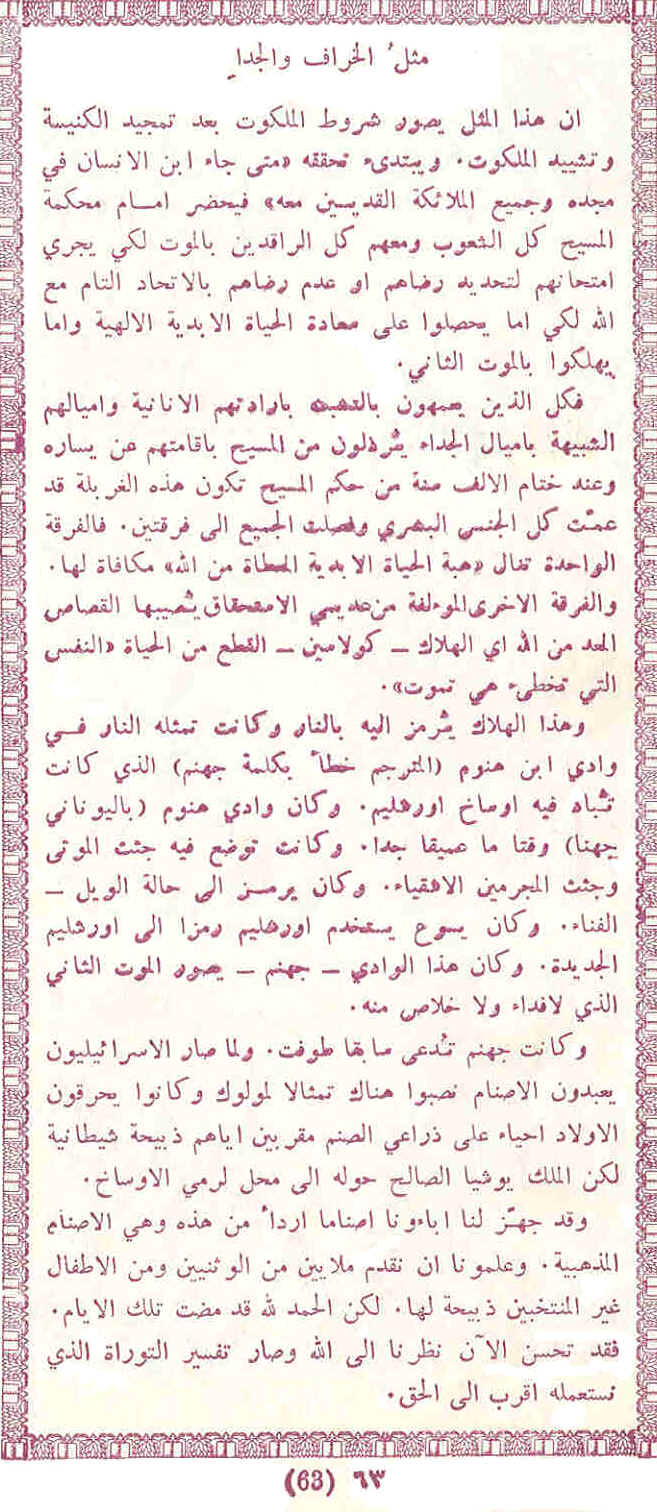 مثلُ الخراف والجدا
ان هذا المثل يصور شروط الملكوت بعد تمجيد الكنيسة
وتشييد الملكوت. ويبتدىء تحققه «متى جاء ابن الانسان في
مجده وجميع الملائكة القديسين معه» فيحضر امام محكمة
المسيح كل الشعوب ومعهم كل الراقدين بالموت لكي يجري
امتحانهم لتحديد رضاهم او عدم رضاهم بالاتحاد التام مع
الله لكي اما يحصلوا على سعادة الحياة الابدية الالهية واما
يهلكوا بالموت الثاني.
فكل الذين يعمهون بالتشبث بارادتهم الانانية واميالهم
الشبيهة باميال الجداء يُرذلون من المسيح باقامتهم عن يساره
وعند ختام الالف سنة من حكم المسيح تكون هذه الغربلة قد
عمّت كل الجنس البشري وفصلت الجميع الى فرقتين. فالفرقة
الواحدة تنال «هبة الحياة الابدية المعطاة من الله» مكافاة لها.
والفرقة الاخرى الموءلفة من عديمي الاستحقاق يُصيبها القصاص
المعد من الله اي الهلاك – كولاسين – القطع من الحياة «النفس
التي تخطىء هي تموت».
وهذا الهلاك يُرمز اليه بالنار وكانت تمثله النار في
وادي ابن هنوم (المترجم خطأ بكلمة جهنم) الذي كانت
تُباد فيه اوساخ اورشليم. وكان وادي هنوم (باليوناني
جهنا) وقتا ما عميقا جدا. وكانت توضع فيه جثث الموتى
وجثث المجرمين الاشقياء. وكان يرمز الى حالة الويل –
الفناء. وكان يسوع يستخدم اورشليم رمزا الى اورشليم
الجديدة. وكان هذا الوادي – جهنم – يصور الموت الثاني
الذي لافداء ولا خلاص منه.
وكانت جهنم تُدعى سابقا طوفت. ولما صار الاسرائيليون
يعبدون الاصنام نصبوا هناك تمثالا لمولوك وكانوا يحرقون
الاولاد احياء على ذراعي الصنم مقربين اياهم ذبيحة شيطانية
لكن الملك يوشيا الصالح حوله الى محل لرمي الاوساخ.
وقد جهّز لنا اباءونا اصناما اردأ من هذه وهي الاصنام
المذهبية. وعلمونا ان نقدم ملايين من الوثنيين ومن الاطفال
غير المنتخبين ذبيحة لها. لكن الحمد لله قد مضت تلك الايام.
فقد تحسن الآن نظرنا الى الله وصار تفسير التوراة الذي
نستعمله اقرب الى الحق.
٦٣ (63)